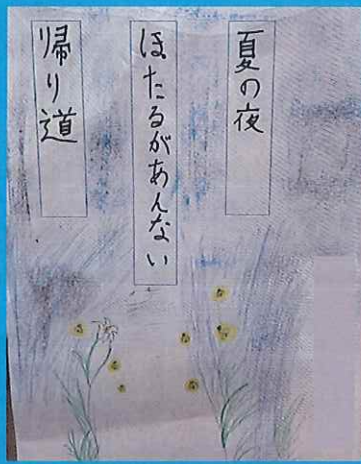 夏の夜
ほたるがあんない
帰り道